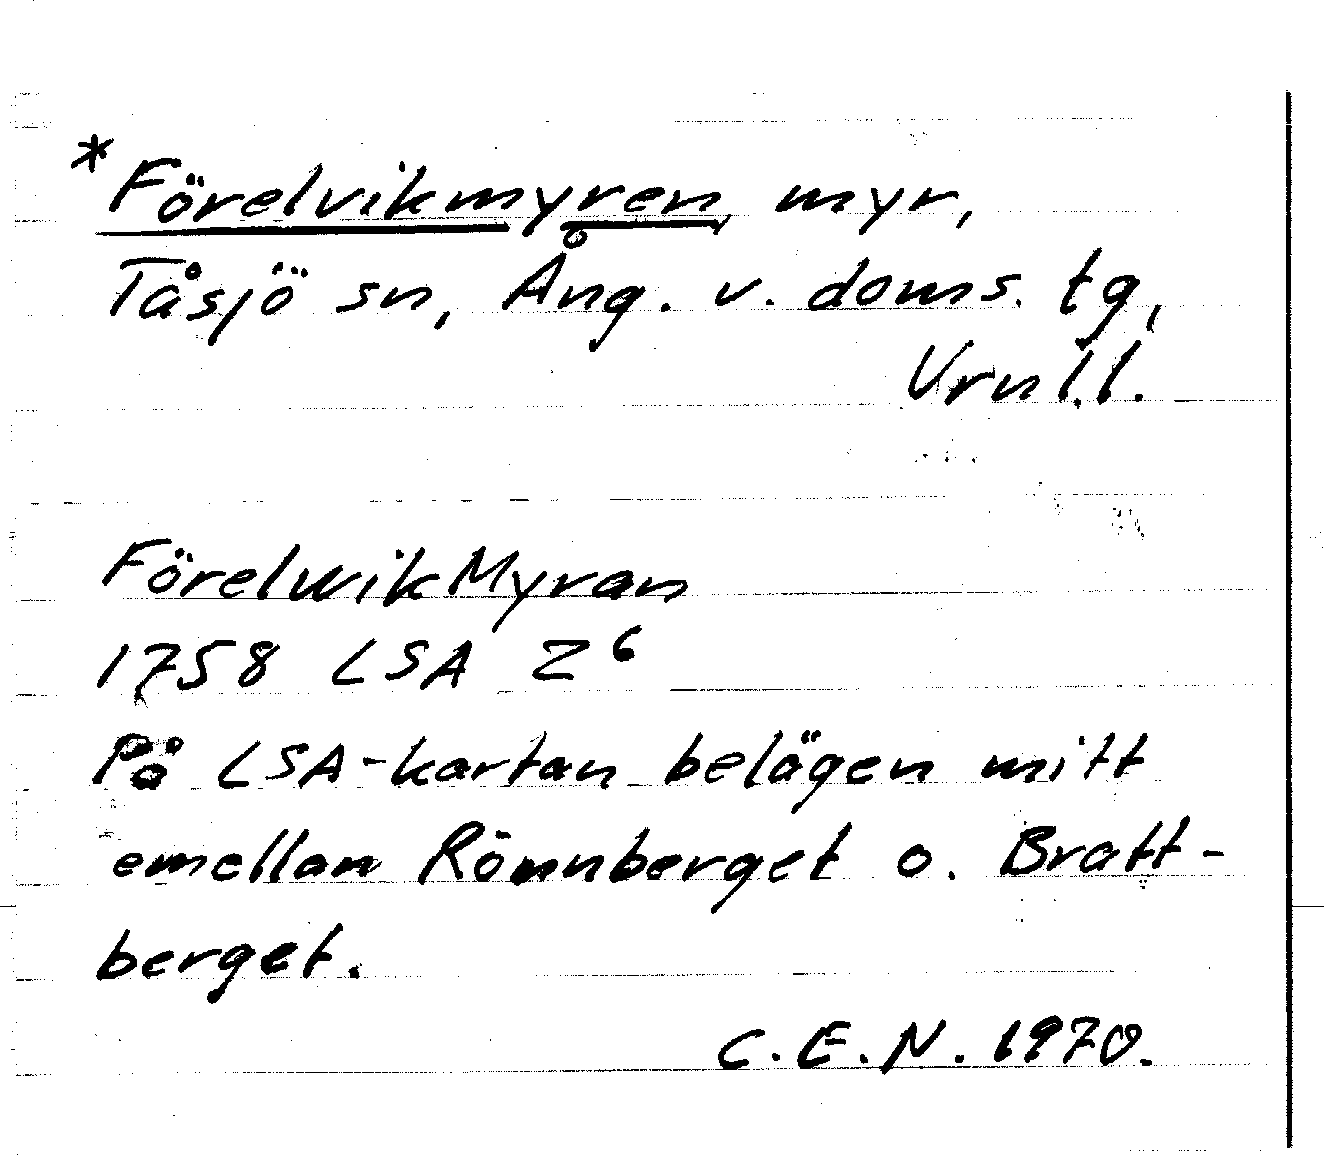 *Förelvikmyren, myr,
Tåsjö sn, Ång. v. doms. tg,
Vrnl.l.
FörelwikMyran
1758 LSA Z⁶
På LSA-kartan belägen mitt
emellan Rönnberget o. Bratt-
berget.
C.E.N. 1970.